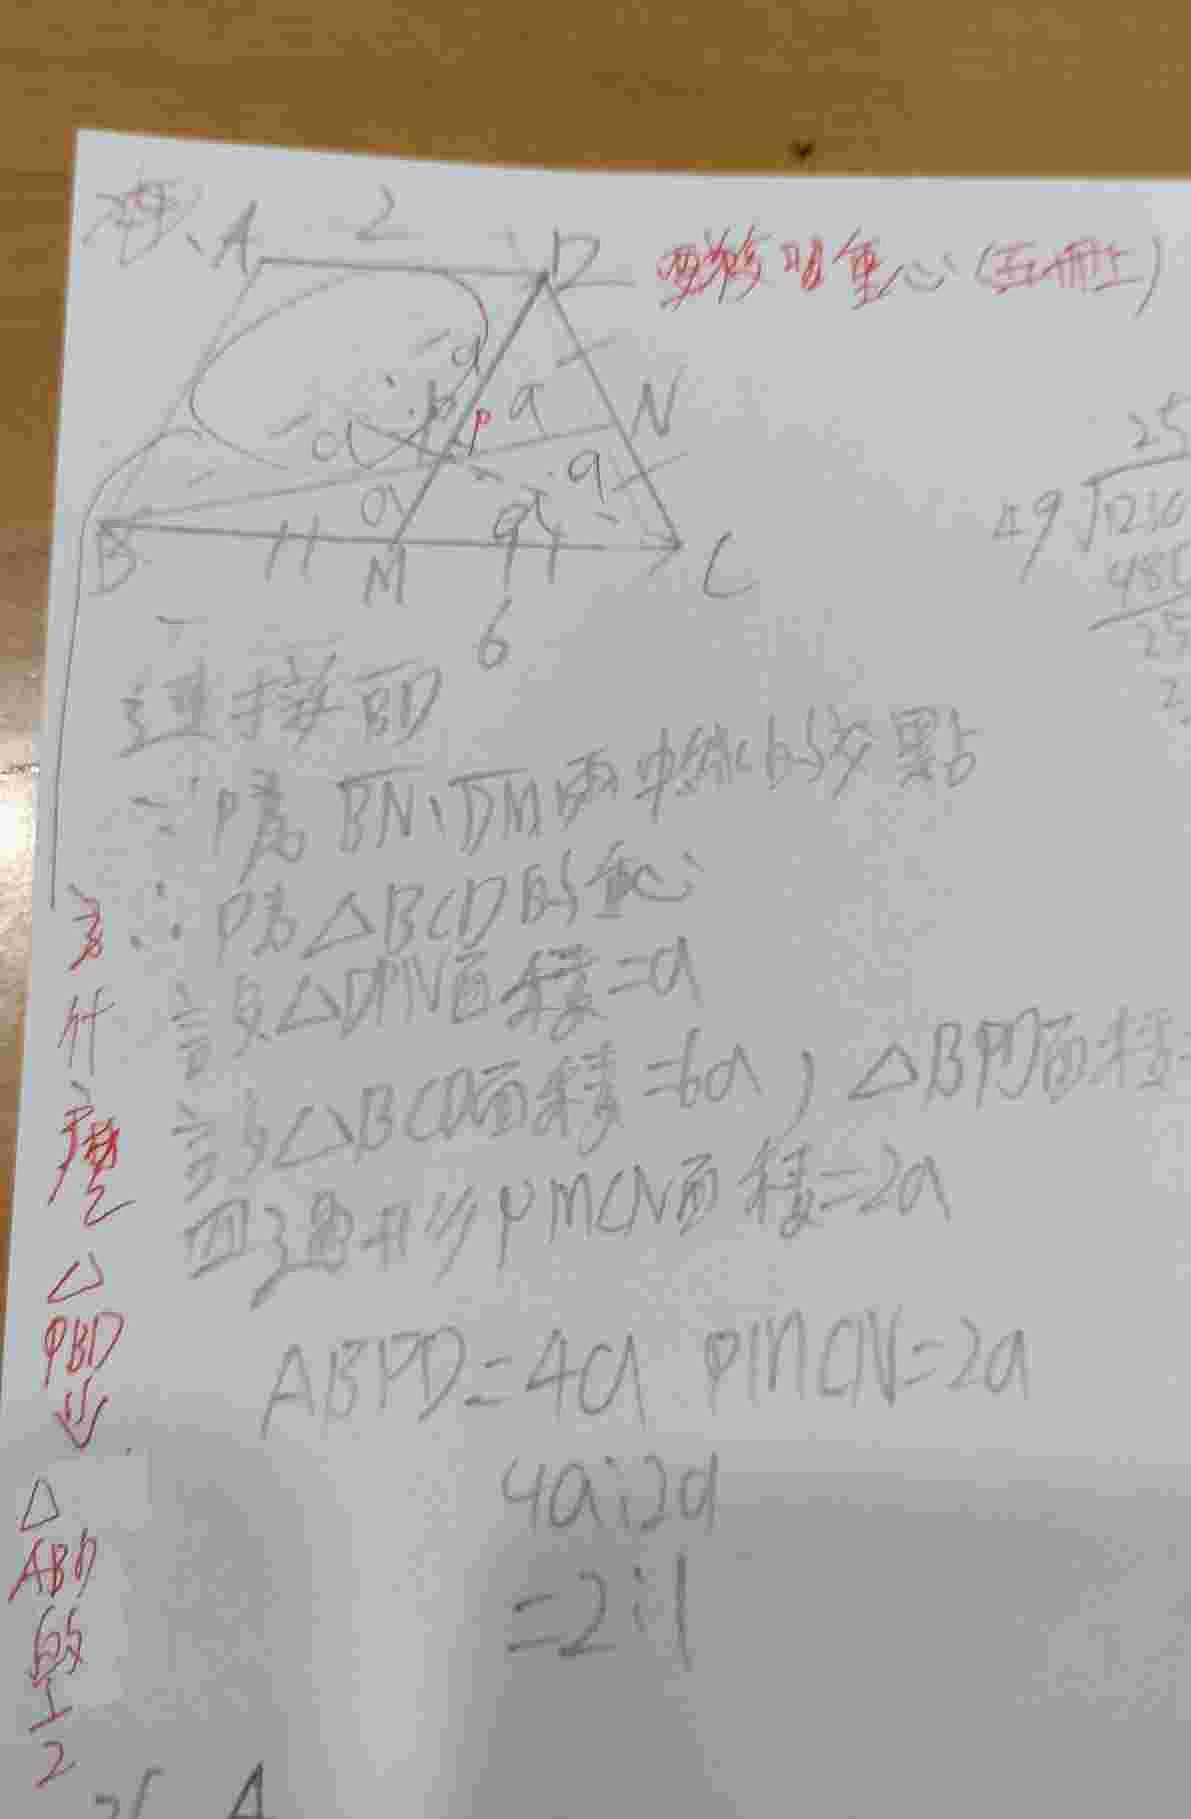 A 2 D
要學習重心(五冊上)
P
a
a N
a a
a a
B M C
6
25
49
連接BD
∵P為BN、DM兩中線的交點
∴P為△BCD的重心
設△DPN面積=a
△BCD面積=6a,△BPD面積=
四邊形PMCN面積=2a
ABPD=4a PMCN=2a
4a:2a
=2:1
為什麼△PBD
△ABD的1/2
A